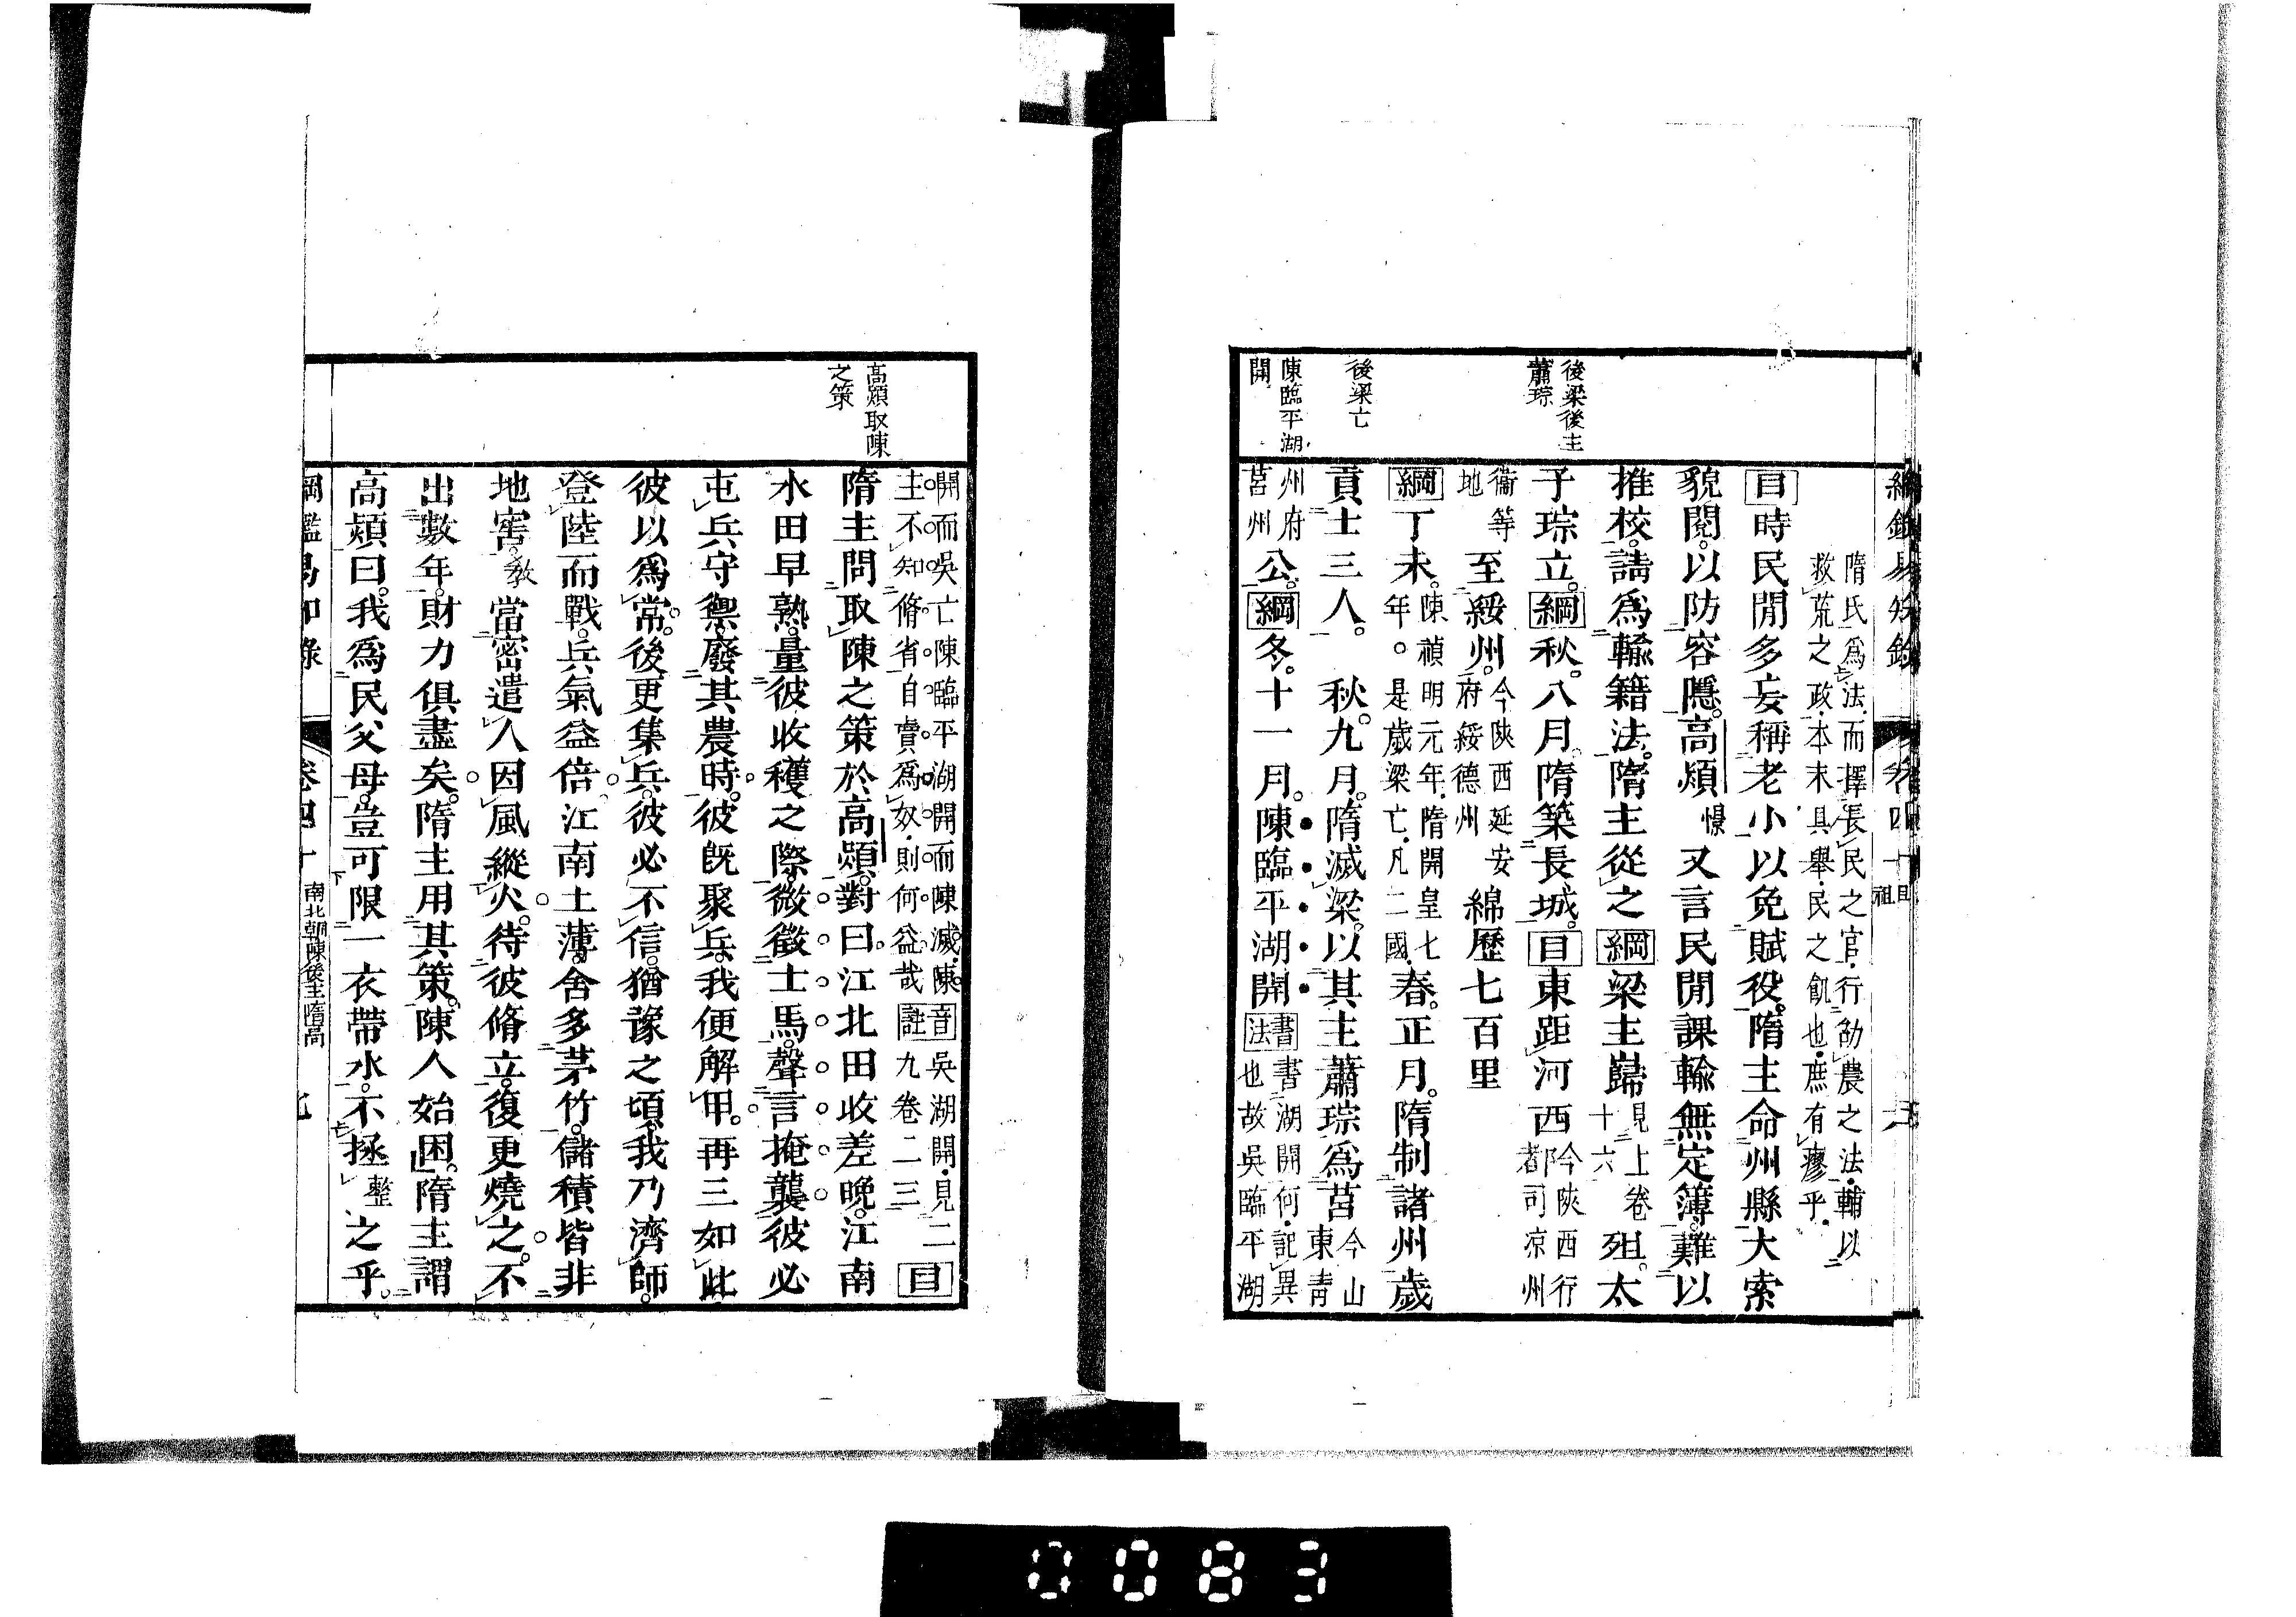 後梁後主
蕭琮
後梁亡
陳臨平湖
開
隋氏爲法而擇長民之官行勸農之法輔以
救荒之政本末具舉民之飢也庶有瘳乎
目時民閒多妄稱老小以免賦役隋主命州縣大索
貌閱以防容隱高熲憬又言民閒課輸無定簿難以
推校請爲輸籍法隋主從之綱梁主巋見上卷十六殂太
子琮立綱秋八月隋築長城目東距河西今陝西行都司凉州
衞等地至綏州今陝西延安府綏德州綿歷七百里
綱丁未陳禎明元年隋開皇七年○是歲梁亡凡二國春正月隋制諸州歲
貢士三人 秋九月隋滅梁以其主蕭琮爲莒今山東青
州府莒州公綱冬十一月陳臨平湖開書法書湖開何記異也故吳臨平湖
高熲取陳
之策
開而吳亡陳臨平湖開而陳滅陳
主不知脩省自賣爲奴則何益哉音註吳湖開見二九卷二三目
隋主問取陳之策於高熲對曰江北田收差晩江南
水田早熟量彼收穫之際微徵士馬聲言掩襲彼必
屯兵守禦廢其農時彼旣聚兵我便解甲再三如此
彼以爲常後更集兵彼必不信猶豫之頃我乃濟師
登陸而戰兵氣益倍江南土薄舍多茅竹儲積皆非
地窖教當密遣人因風縱火待彼脩立復更燒之不
出數年財力俱盡矣隋主用其策陳人始困隋主謂
高熲曰我爲民父母豈可限一衣帶水不拯整之乎
綱鑑易知錄 卷四十 南北朝陳後主隋高